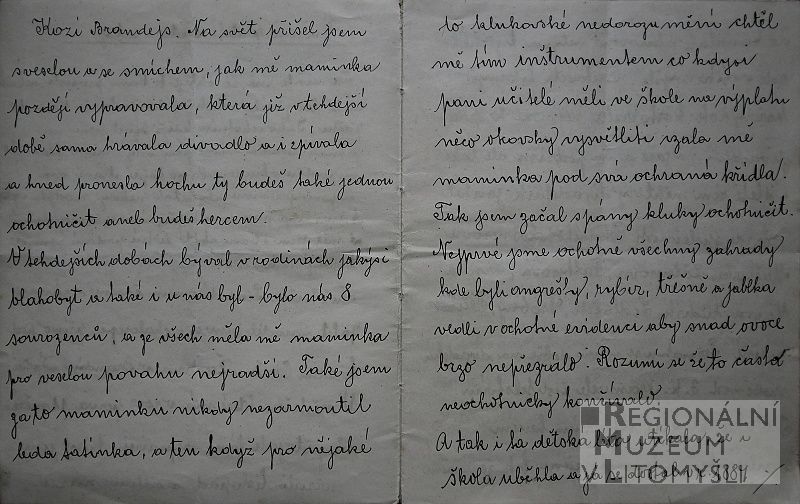 Kozí Brandejs. Na svět přišel jsem
sveselou a se smíchem, jak mě maminka
později vypravovala, která již vtehdejší
době sama hrávala divadlo a i zpívala
a hned pronesla hochu ty budeš také jednou
ochotničit aneb budeš hercem.
V tehdejších dobách býval v rodinách jakýsi
blahobyt a také i u nás byl - bylo nás 8
sourozenců, a ze všech měla mě maminka
pro veselou povahu nejradši. Také jsem
za to maminku nikdy nezarmoutil
leda tatínka, a ten když pro nějaké
to klukovské nedorozumění chtěl
mě tím inštrumentem co kdysi
pani učitelé měli ve škole na výplatu
něco okovsky vysvětliti vzala mě
maminka pod svá ochraná křídla.
Tak jsem začal spány kluky ochotničit.
Nejprvé jsme ochotně všechny zahrady
kde byli angrešty, rybíz, třešně a jablka
vedli v ochotné evidenci aby snad ovoce
brzo nepřezrálo. Rozumí se že to často
neochotnicky končívalo.
A tak i ta dětska léta utíkala, že i
škola uběhla a já se
REGIONÁLNÍ
MUZEUM
V LITOMYŠLI